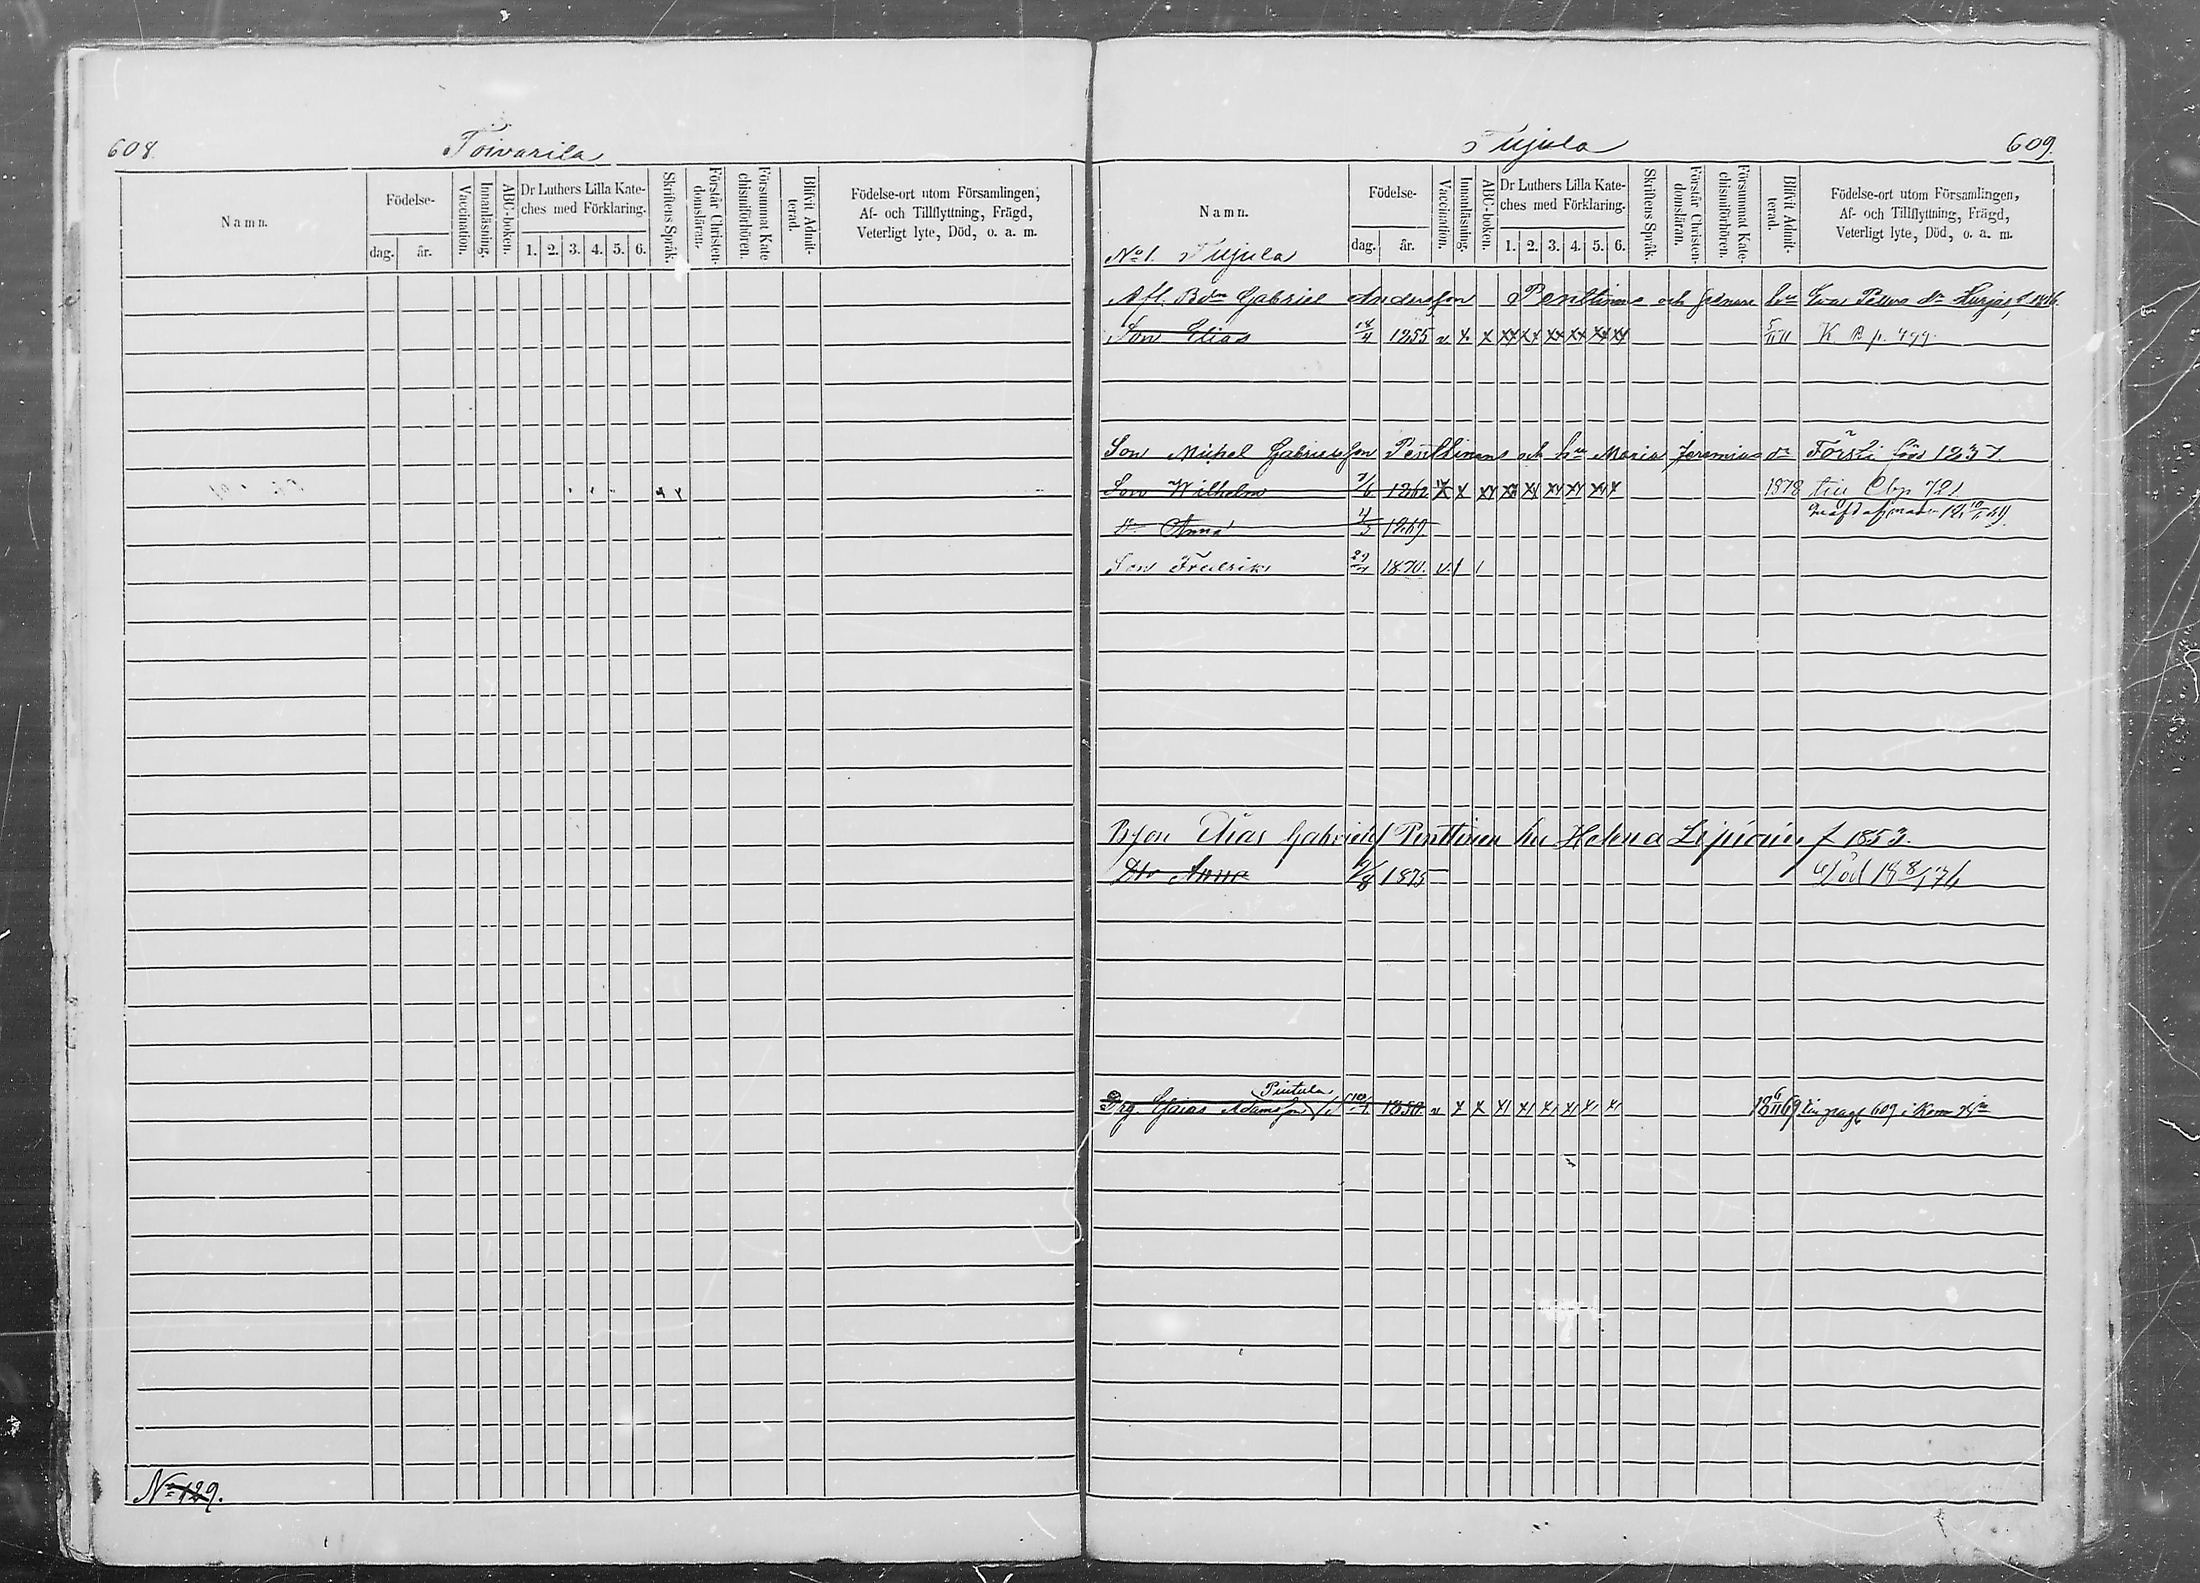 608.
Toivarila
Namn.
Födelse-
dag.
år.
Vaccination.
Innanläsning.
ABC-boken.
Dr Luthers Lilla Kate-
ches med Förklaring.
1. 2. 3. 4. 5. 6.
Skriftens Språk.
Förstår Christen-
domsläran.
Försummat Kate-
chismiförhören.
Blifvit Admit-
terad.
Födelse-ort utom Församlingen,
Af- och Tillflyttning, Frägd,
Veterligt lyte, Död, o. a. m.
No 129.
Tujula
609.
Namn.
Födelse-
dag.
år.
Vaccination.
Innanläsning.
ABC-boken.
Dr Luthers Lilla Kate-
ches med Förklaring.
1. 2. 3. 4. 5. 6.
Skriftens Språk.
Förstår Christen-
domsläran.
Försummat Kate-
chismiförhören.
Blifvit Admit-
terad.
Födelse-ort utom Församlingen,
Af- och Tillflyttning, Frägd,
Veterligt lyte, Död, o. a. m.
No 1. Tujula
Afl. Bdn Gabriel Andersson Penttinens och hu Eva Petters dr Hurjas
Son Elias 18/4 1855 v x x K B p. 499.
Son Michel Gabrielsson Penttinens och hu Maria Jeremias dr Försti född 1837.
Son Wilhelm 7/6 1862 1878 till Cbp 721
dr Anna 4/3 1869.
Son Fredrik 1870. v
Bson Elias Gabrielss Penttinen hu Helena Lipiäin f 1853.
Dtr Anna 1875 Död 18 8/1 76
Piutula
Drg. Adamsson 1850. v x x 18 6/11 69 till pag 609 i Kom